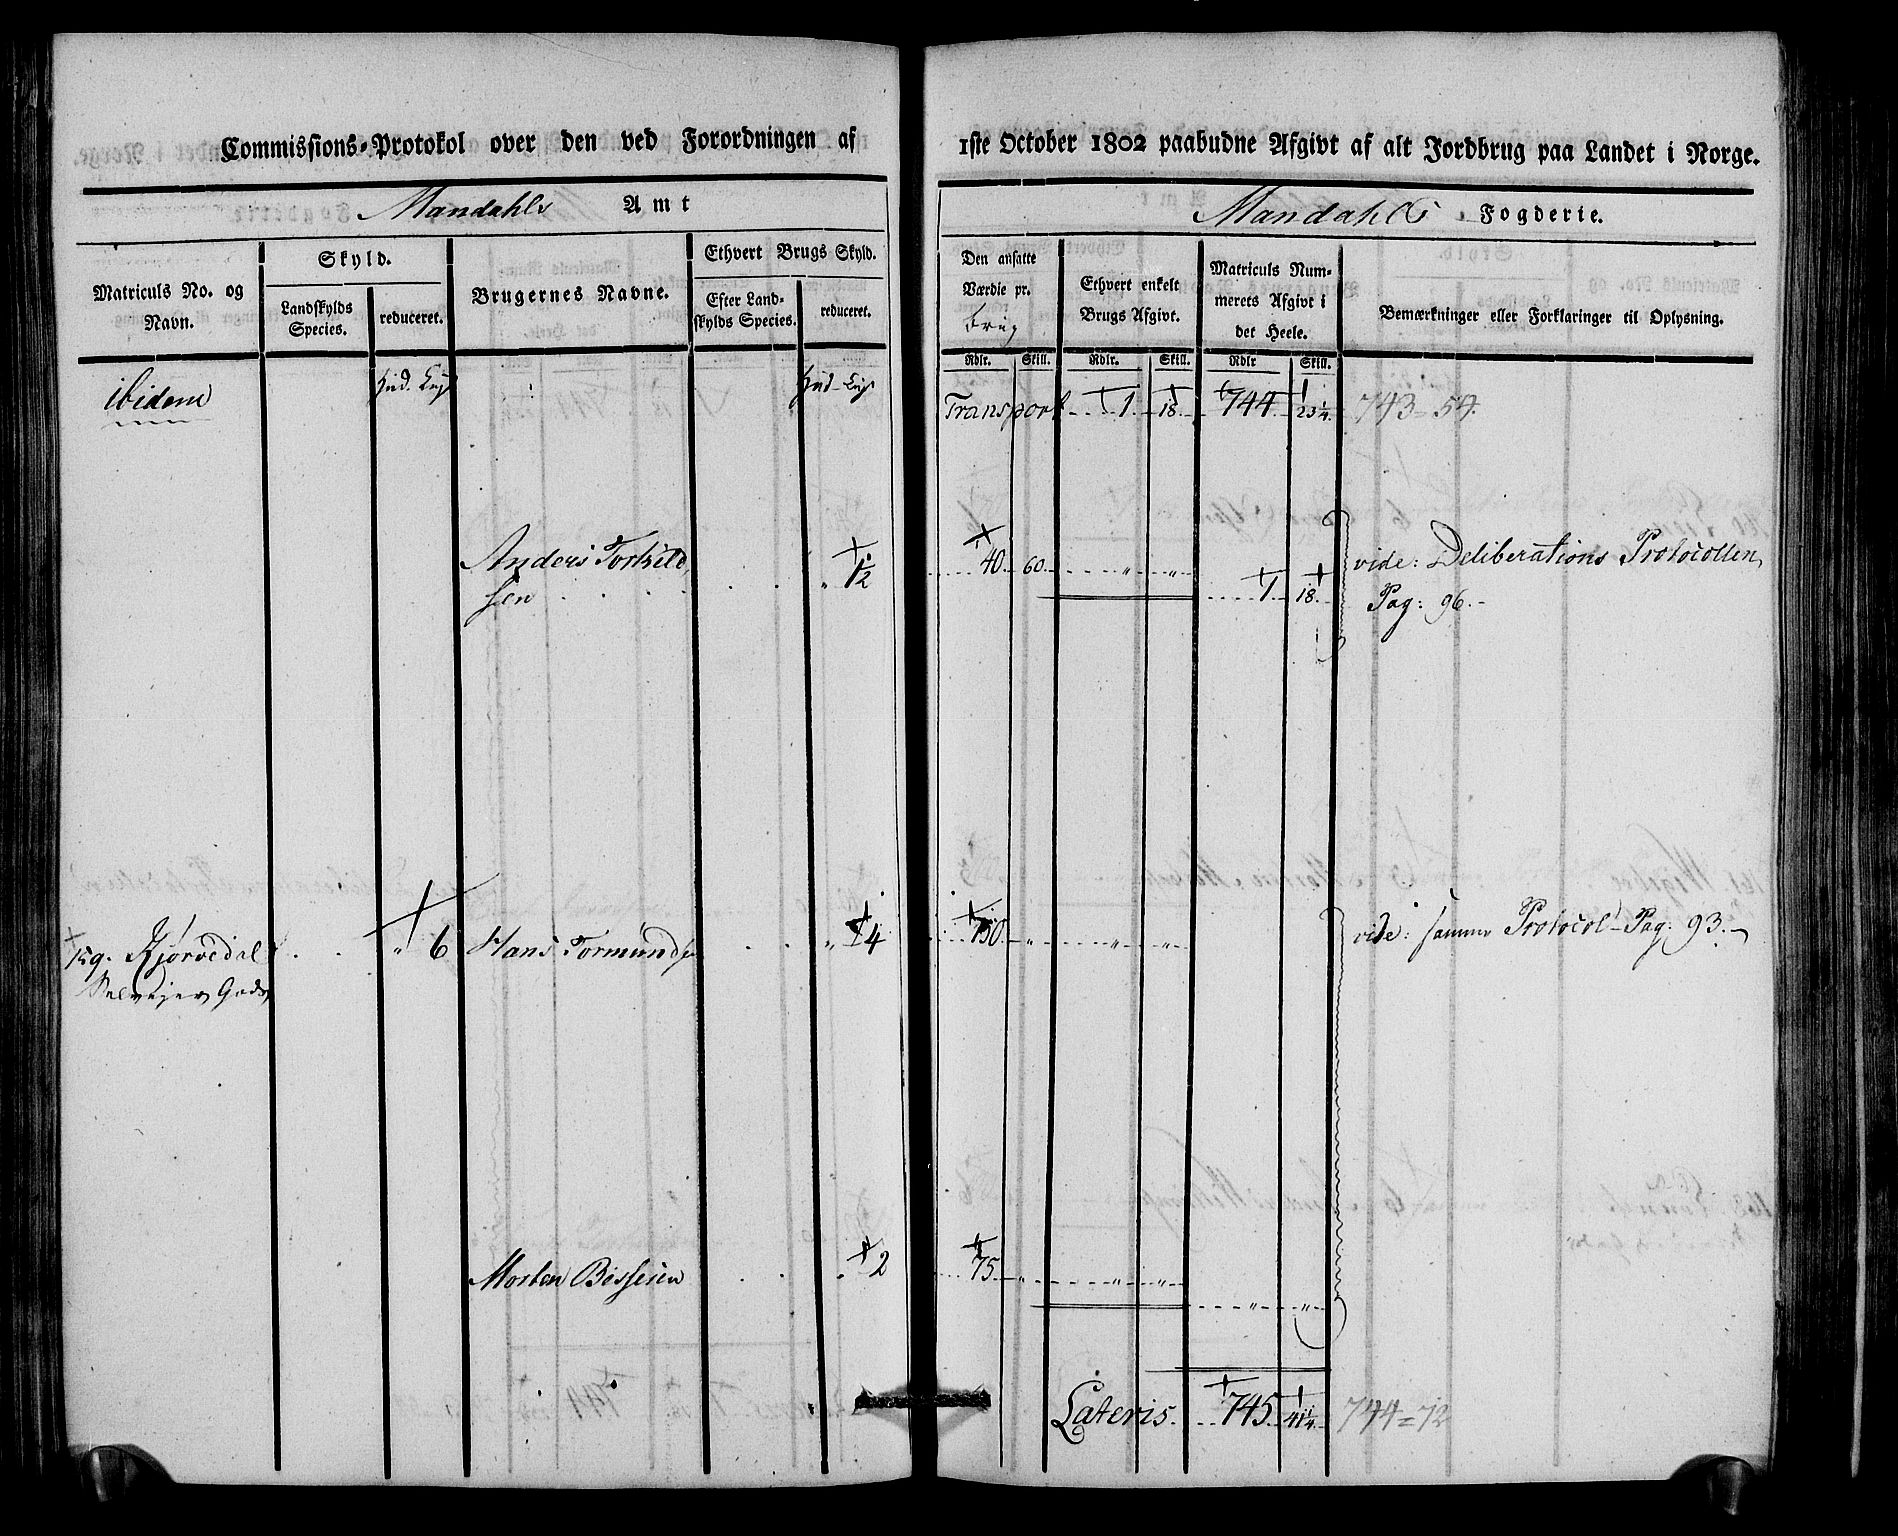 Commissions-Protokol over den ved Forordningen af
Mandahls Amt
Matriculs No. og Navn.
Skyld.
Landskylds Species.
reduceret.
Brugernes Navne.
Ethvert Brugs Skyld.
Efter Land-
skylds Species.
reduceret.
ibidem
Hud.
Hud.
Anders Torkild,
sen . . . . . . „ 1/2
159. Kjørvedal . . „ 6 Hans Tormunds . . „ 4
Selvejer Gods
Morten . . „ 2
1ste October 1802 paabudne Afgivt af alt Jordbrug paa Landet i Norge.
Mandahls Fogderie.
Den ansatte
Værdie pr.
brug
Ethvert enkelt
Brugs Afgivt.
Matriculs Num-
merets Afgivt i
det Heele.
Bemærkninger eller Forklaringer til Oplysning.
Rdlr. Skill. Rdlr. Skill. Rdlr Skill.
Transport 1. 18. 744. 23 1/4. 743 = 54.
40. 60. „ „ vide: Deliberations Protocollen,
1. 18. Pag: 96.-
150 „ „ „ vide: samme Protocol- Pag: 93.-
75. „ „ „
„ „
Lateris. 745. 41 1/4. 744=72